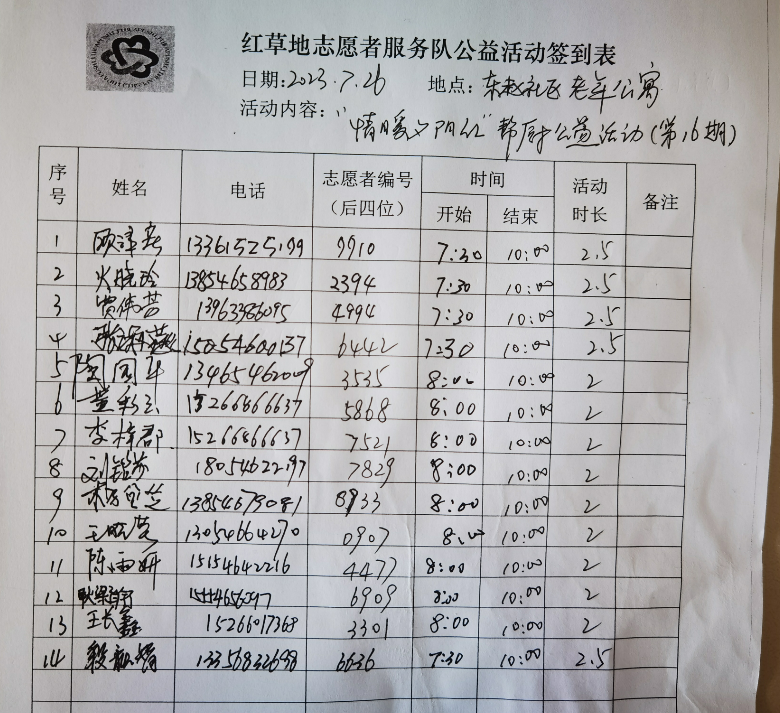 红草地志愿者服务队公益活动签到表
日期:2023.7.26 地点:东赵社区老年公寓
活动内容:"情暖夕阳红"帮厨公益活动(第16期)
序号 姓名 电话 志愿者编号(后四位) 时间 开始 结束 活动时长 备注
1 13361525199 9910 7:30 10:00 2.5
2 火晓玲 13854658983 2394 7:30 10:00 2.5
3 贾伟芸 13963386095 4994 7:30 10:00 2.5
4 15054600137 6442 7:30 10:00 2.5
5 13465462009 3535 8:00 10:00 2
6 董彩云 15266866637 5868 8:00 10:00 2
7 李梓郡 15266866637 7521 8:00 10:00 2
8 18054622197 7829 8:00 10:00 2
9 13854673081 8933 8:00 10:00 2
10 13054664270 0907 8:00 10:00 2
11 陈雨妍 15154642216 4477 8:00 10:00 2
12 6909 8:00 10:00 2
13 王长鑫 15266017368 3301 8:00 10:00 2
14 13356832698 6636 7:30 10:00 2.5